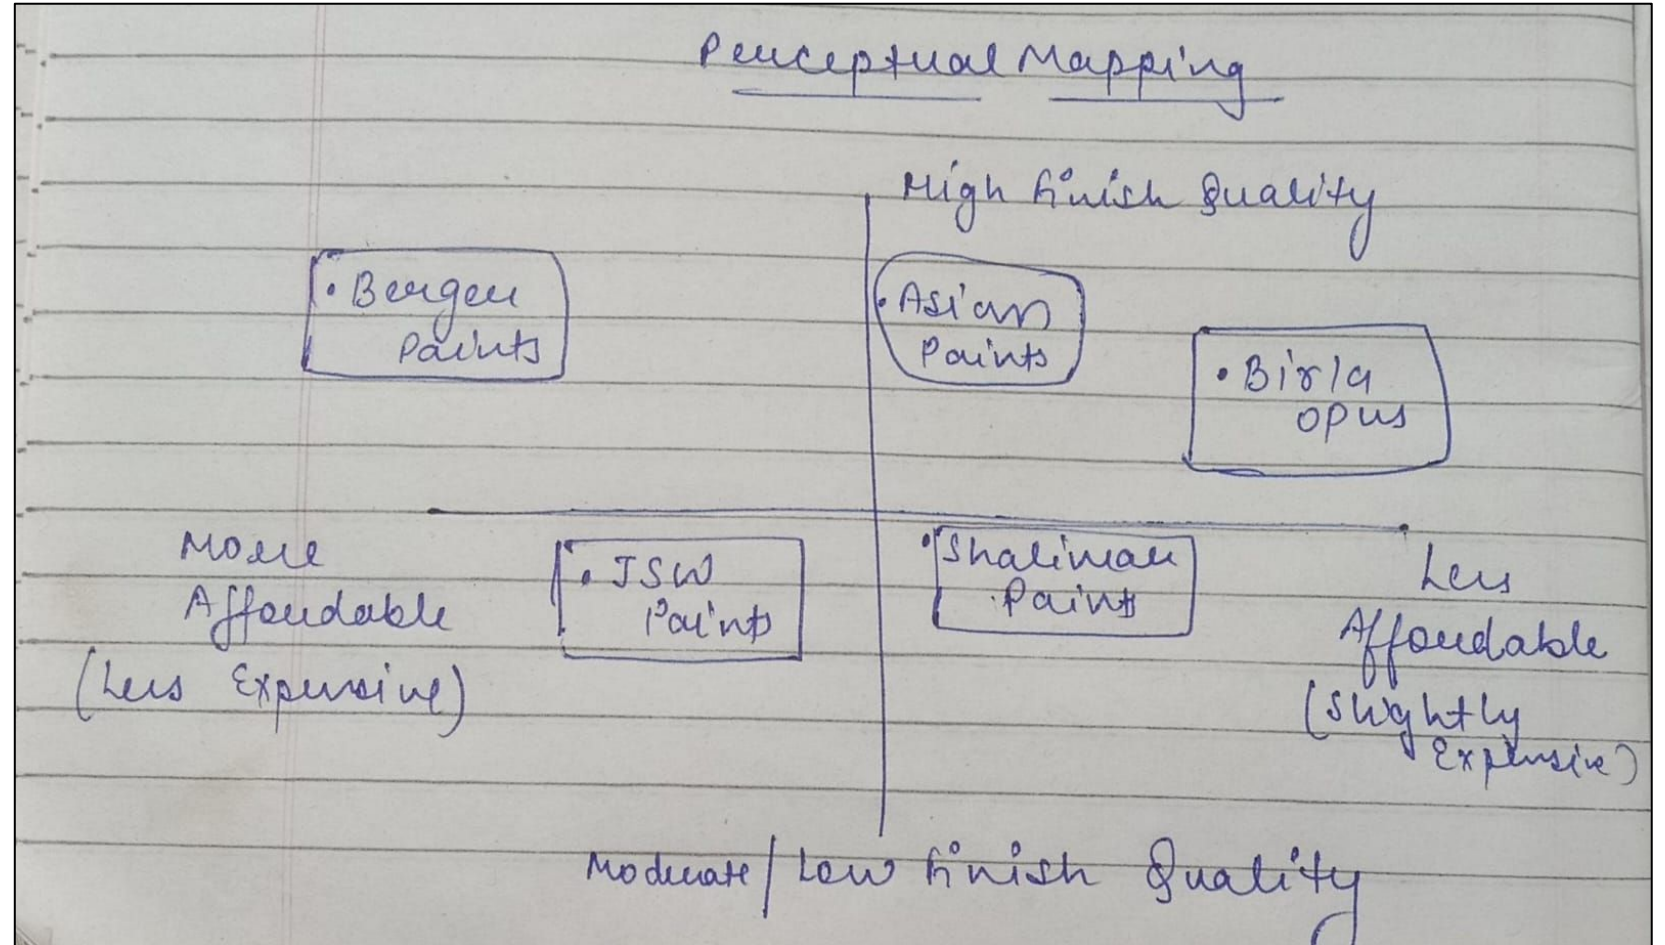 Perceptual Mapping
High Finish Quality
• Berger
Paints
• Asian
Paints
• Birla
opus
More
Affordable
(Less Expensive)
• JSW
Paints
• Shalimar
Paints
Less
Affordable
(Slightly
Expensive)
Moderate / Low Finish Quality